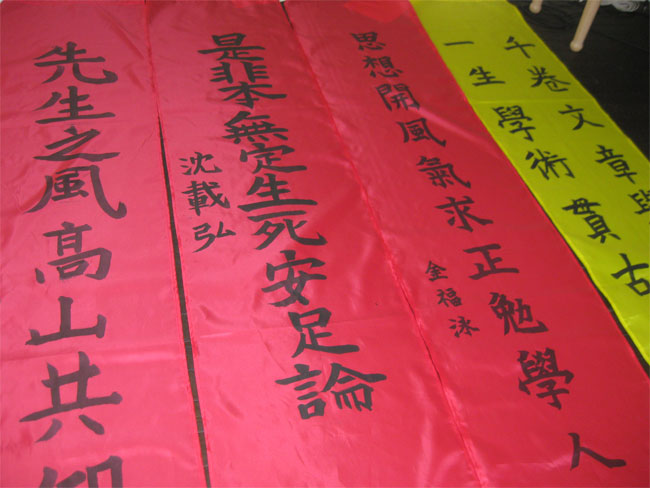 千卷文章
一生學術貫古
思想開風氣求正勉學人
金福泳
是非本無定生死安足論
沈載弘
先生之風高山共